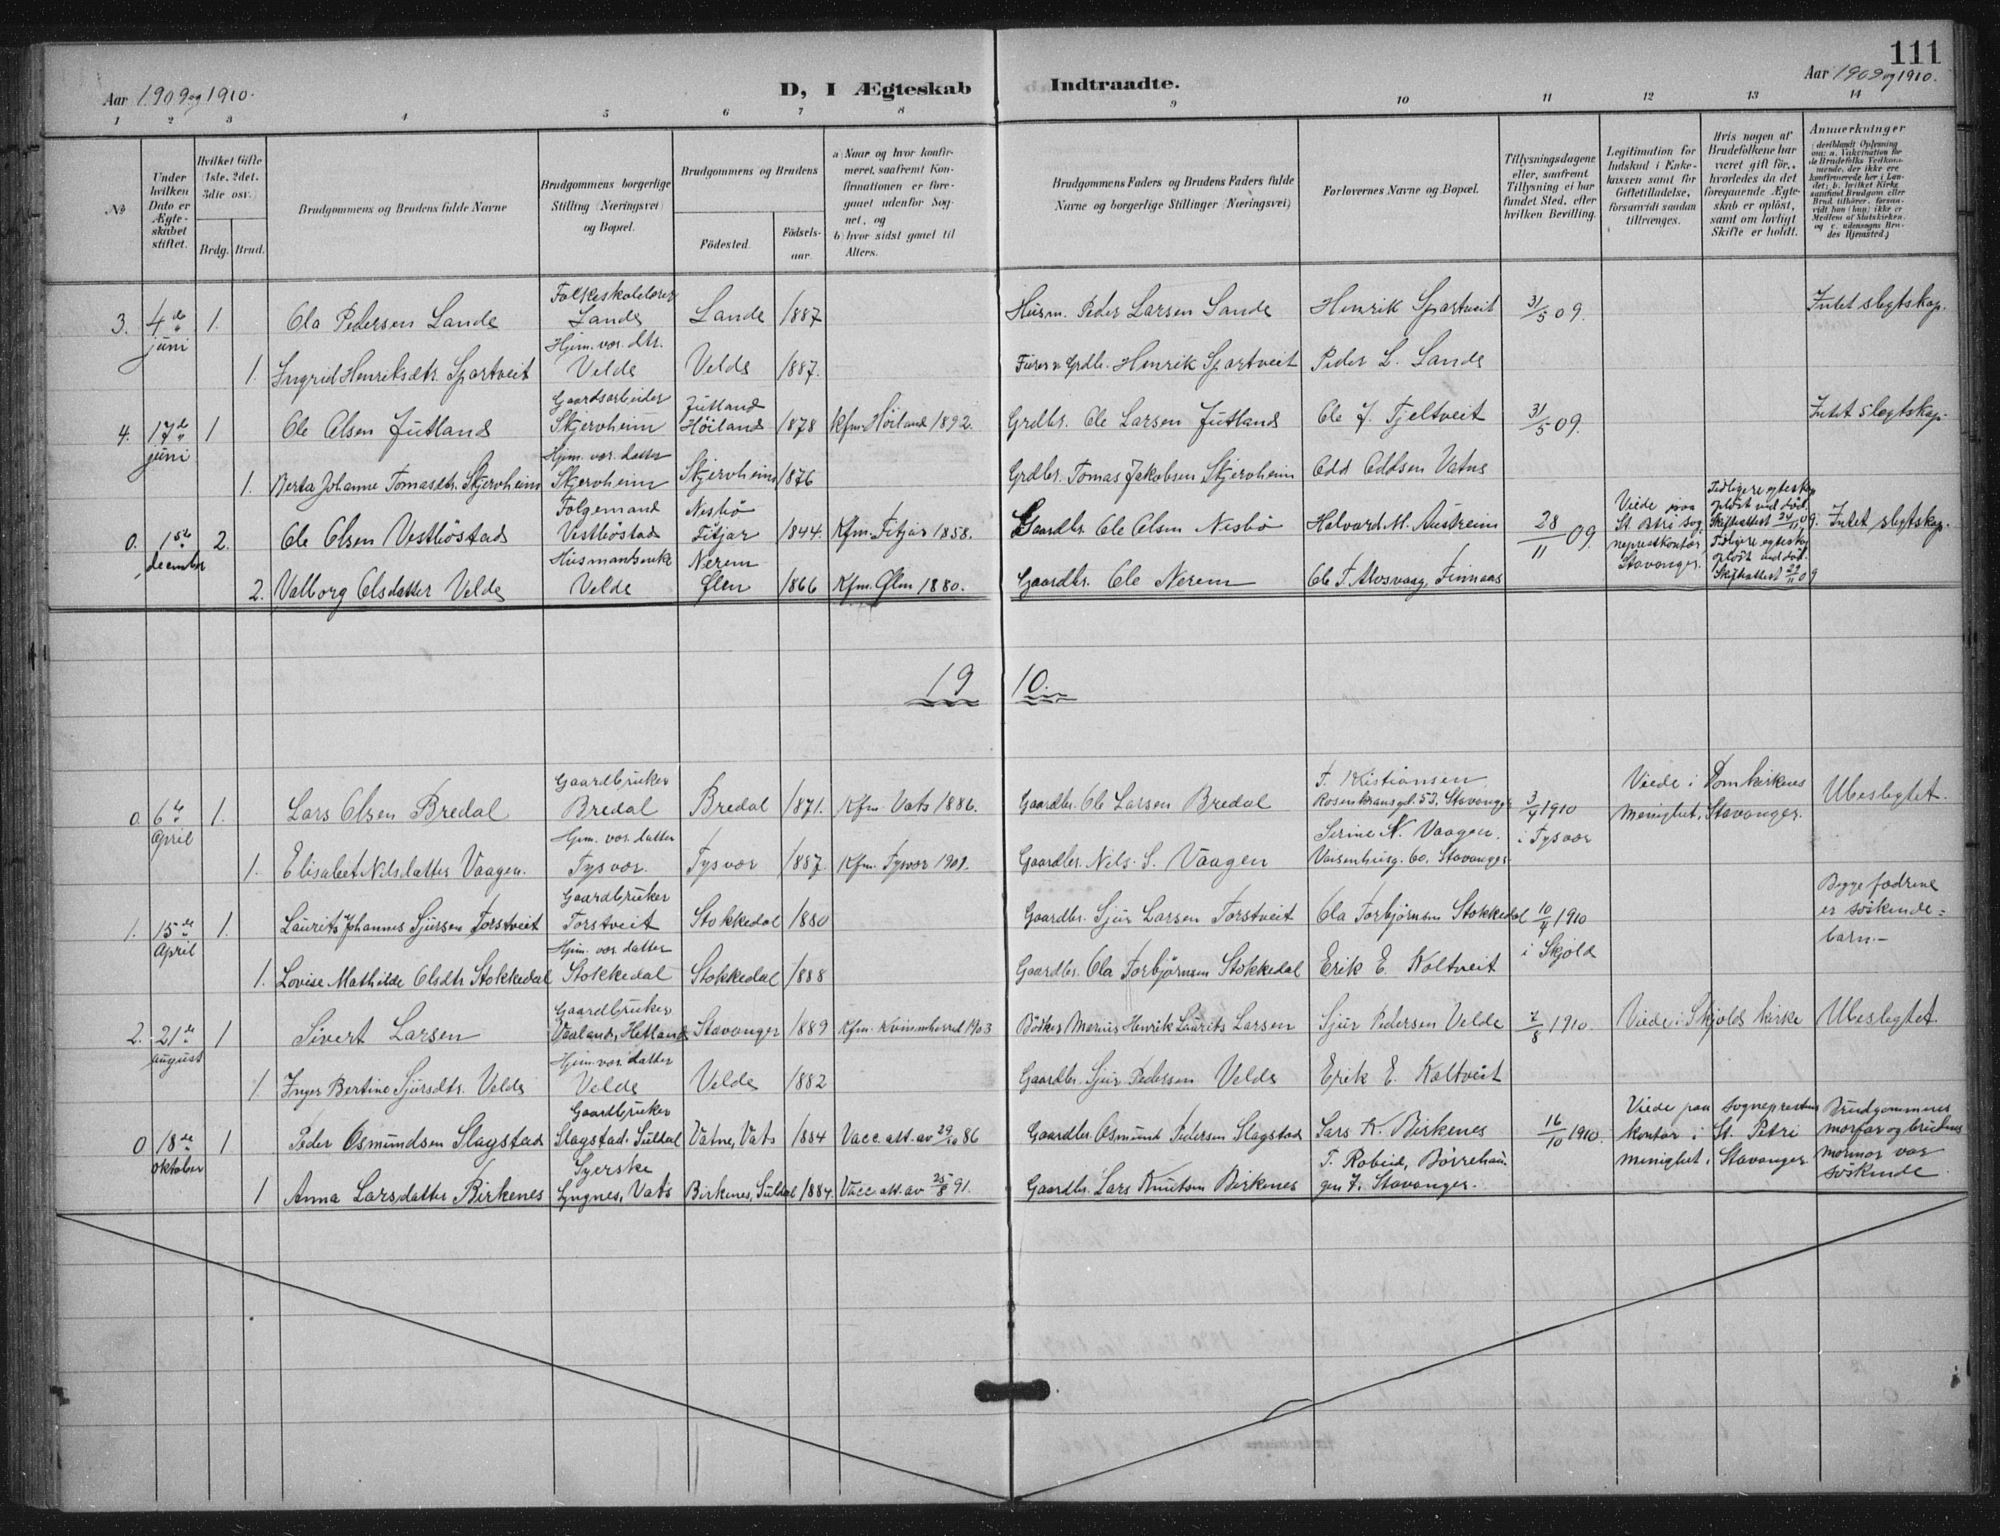 111
Aar 1909 og 1910.
D, I Ægteskab Indtraadte.
Aar 1909 og 1910.
1 2 3 4 5 6 7 8 9 10 11 12 13 14
No
Under hvilken Dato er Ægteskabet stiftet.
Hvilket Gifte 1ste, 2det, 3die osv.
Brdg. Brud.
Brudgommens og Brudens fulde Navne
Brudgommens borgerlige Stilling (Næringsvei) og Bopæl.
Brudgommens og Brudens
Fødested.
Fødselsaar.
a) Naar og hvor konfirmeret, saafremt Konfirmationen er foregaaet udenfor Sognet, og
b) hvor sidst gaaet til Alters.
Brudgommens Faders og Brudens Faders fulde Navne og borgerlige Stillinger (Næringsvei)
Forlovernes Navne og Bopæl.
Tillysningsdagene eller, saafremt Tillysning ei har fundet Sted, efter hvilken Bevilling.
Legitimation for Indskud i Enkekassen samt for Giftetilladelse, forsaavidt saadan tiltrænges.
Hvis nogen af Brudefolkene har været gift før, hvorledes da det foregaaende Ægteskab er opløst, samt om lovligt Skifte er holdt.
Anmerkninger (deriblandt Oplysning om: a. Vakcination for de Brudefolks Vedkommende, der ikke ere konfirmerede her i Landet; b. hvilket Kirkesamfund Brudgom eller Brud tilhører, forsaavidt han (hun) ikke er Medlem af Statskirken, og c. udensogns Brudes Hjemsted.)
3. 4de juni 1. Ola Pedersen Lande Folkeskolelærer Lande Lande 1887 Husm. Peder Larsen Sande Henrik Spartveit 31/5 09. Intet slegtskap.
1. Ingrid Henriksdtr. Spartveit Hjm. vær. dtr. Velde Velde 1887. Fører & Grdbr. Henrik Spartveit Peder L. Lande
4. 17de juni 1 Ole Olsen Jutland Gaardsarbeider Skjervheim Jutland Høiland 1878 Kfm. Høiland 1892. Grdbr. Ole Larsen Jutland Ole J. Fjeltveit 31/5 09. Intet slegtskap.
1. Berta Johanne Tomasdtr. Skjervheim Hjm. vær. datter Skjervheim Skjervheim 1876 Grdbr. Tomas Jakobsen Skjervheim Odd Oddsen Vatne
0. 1ste december 2. Ole Olsen Vestbøstad Folgemand Vestbøstad Nesbø Fitjar 1844. Kfm. Fitjar 1858. Gaardbr. Ole Olsen Nesbø Halvard M. Austreim 28/11 09. Viede paa St. Petri sogneprestkontor, Stavanger. Tidligere egteskap opløst ved død. Skifteattest 24/11 09. Intet slegtskap.
2. Valborg Olsdatter Velde Husmandsenke Velde Nerem Ølen 1866 Kfm. Ølen 1880. Gaardbr. Ole Nerem Ole T. Mosvaag, Finnaas Tidligere egteskap opløst ved død. Skifteattest 29/11 09
19 10.
0 6te April 1. Lars Olsen Bredal Gaardbruker Bredal Bredal 1871. Kfm. Vats 1886. Gaardbr. Ole Larsen Bredal T. Kristiansen, Rosenkransgt. 53, Stavanger 3/4 1910 i Tysvær Viede i Domkirkens menighet, Stavanger. Ubeslegtet.
1. Elisabet Nilsdatter Vaagen. Hjm. vær. datter Tysvær. Tysvær 1887. Kfm. Tysvær 1901. Gaardbr. Nils S. Vaagen Serine N. Vaagen. Vaisenhusg. 60, Stavanger.
1. 15de April 1. Laurits Johannes Sjursen Torstveit Gaardbruker Torstveit Stokkedal 1880 Gaardbr. Sjur Larsen Torstveit Ola Torbjørnsen Stokkedal 10/4 1910 i Skjold Begge fædrene er søskendebarn.-
1. Lovise Mathilde Olsdtr Stokkedal Hjm. vær. datter Stokkedal Stokkedal 1888 Gaardbr. Ola Torbjørnsen Stokkedal Erik E. Koltveit
2. 21de august 1 Sivert Larsen Gaardbruker Vaaland, Hetland Stavanger 1889 Kfm. Kvinnherred 1903 Bødker Marius Henrik Laurits Larsen Sjur Pedersen Velde 7/8 1910. Viede i Skjolds kirke Ubeslegtet
1 Inger Bertine Sjursdtr. Velde Hjm. vær. datter Velde Velde 1882 Gaardbr. Sjur Pedersen Velde Erik E. Koltveit
0 18de oktober 1 Peder Osmundsen Slagstad Gaardbruker Slagstad, Suldal Vatne, Vats 1884 Vacc. att. av 29/10 86 Gaardbr. Osmund Pedersen Slagstad Lars K. Birkenes 16/10 1910. Viede paa sogneprestens kontor i St. Petri menighet, Stavanger Brudgommens morfar og brudens mormor var søskende
1 Anna Larsdatter Birkenes Syerske Lyngnes, Vats Birkenes, Suldal 1884. Vacc. att. av 25/8 91. Gaardbr. Lars Knutsen Birkenes T. Robeid, Børrehaugen 7. Stavanger.